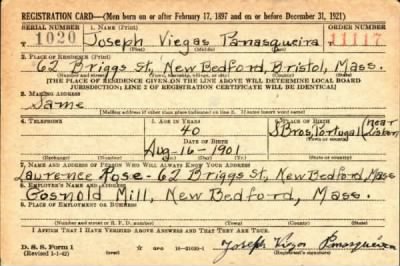 REGISTRATION CARD—(Men born on or after February 17, 1897 and on or before December 31, 1921)
SERIAL NUMBER 1. NAME (Print) ORDER NUMBER
1020 Joseph Viegas Panasqueira 11117
(First) (Middle) (Last)
2. PLACE OF RESIDENCE (Print)
62 Briggs St, New Bedford, Bristol, Mass.
(Number and street) (Town, township, village, or city) (County) (State)
[THE PLACE OF RESIDENCE GIVEN ON THE LINE ABOVE WILL DETERMINE LOCAL BOARD
JURISDICTION; LINE 2 OF REGISTRATION CERTIFICATE WILL BE IDENTICAL]
3. MAILING ADDRESS
Same
[Mailing address if other than place indicated on line 2. If same insert word same]
4. TELEPHONE 5. AGE IN YEARS 6. PLACE OF BIRTH
40 S Bros, Portugal (near Lisbon)
DATE OF BIRTH
Aug-16-1901
7. NAME AND ADDRESS OF PERSON WHO WILL ALWAYS KNOW YOUR ADDRESS
Lawrence Rose-62 Briggs St, New Bedford, Mass
8. EMPLOYER'S NAME AND ADDRESS
Gosnold Mill, New Bedford, Mass.
9. PLACE OF EMPLOYMENT OR BUSINESS
(Number and street or R. F. D. number) (Town) (County) (State)
I AFFIRM THAT I HAVE VERIFIED ABOVE ANSWERS AND THAT THEY ARE TRUE.
D. S. S. Form 1
(Revised 1-1-42) (over) Joseph